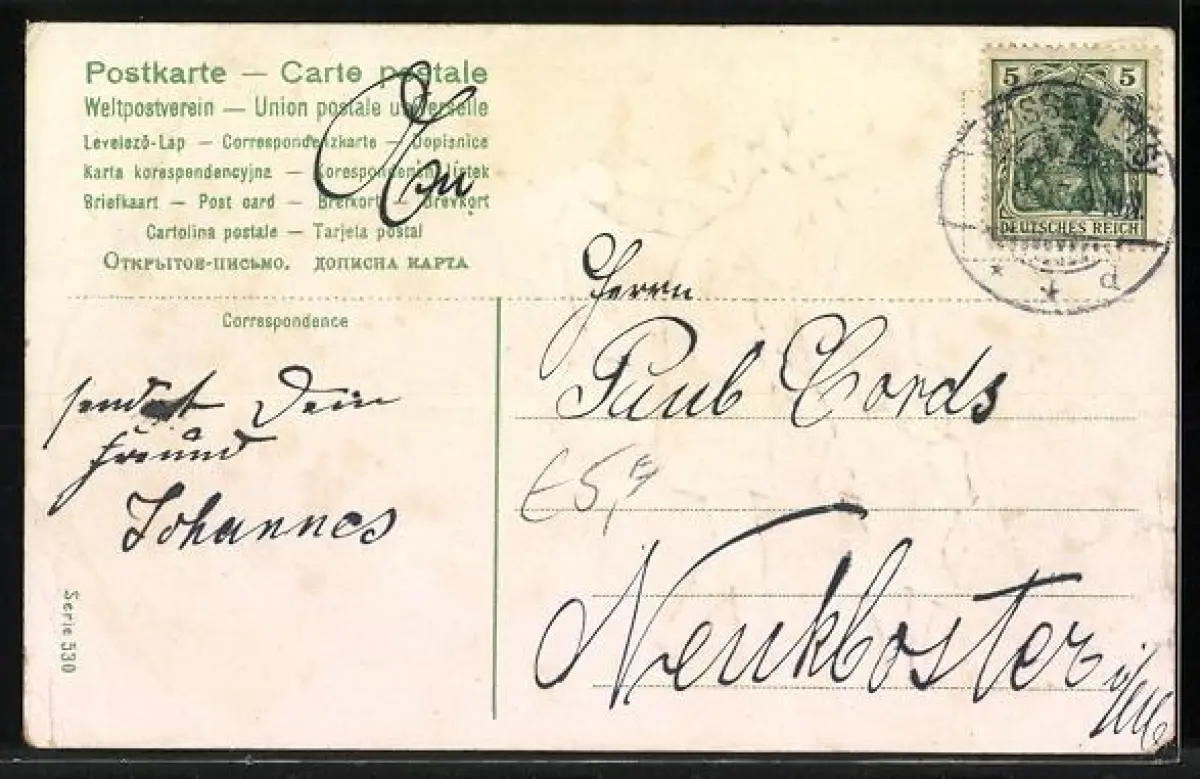 Postkarte — Carte postale
Weltpostverein — Union postale universelle
Levelező-Lap — Correspondenzkarte — Dopisnice
Karta korespondencyjna — Korespondenční lístek
Briefkaart — Post card — Brefkort — Brevkort
Cartolina postale — Tarjeta postal
Открытое-письмо. дописна карта
An
5 5
DEUTSCHES REICH
d
Correspondence
Herrn
Paul Cords
Neukloster i/M
sendet Dein
Freund
Johannes
Serie 530